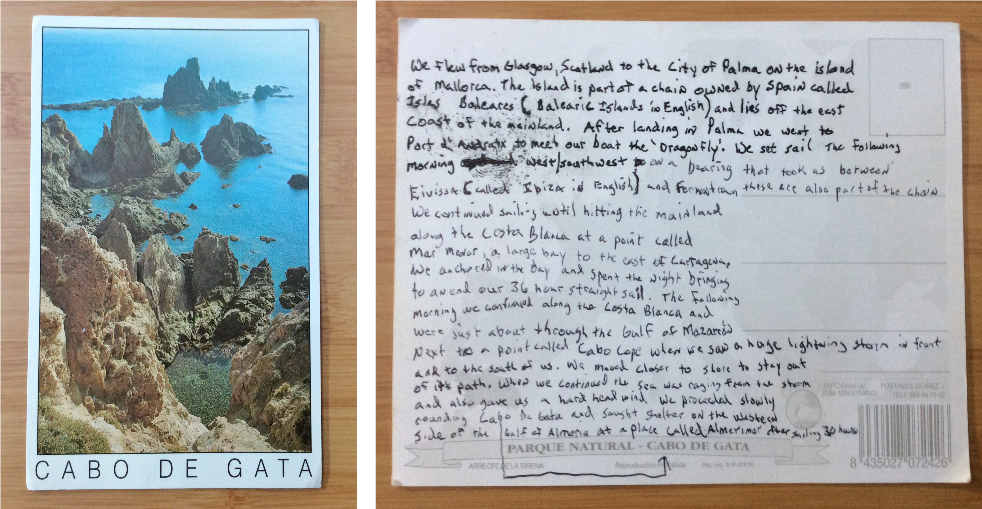 CABO DE GATA
We flew from Glasgow, Scotland to the City of Palma on the island
of Mallorca. The island is part of a chain owned by Spain called
Islas Baleares (Balearic Islands in English) and lies off the east
coast of the mainland. After landing in Palma we went to
Port d'Andratx to meet our boat the 'Dragonfly'. We set sail the following
morning west/southwest on a bearing that took us between
Eivissa (called Ibiza in English) and Formentera these are also part of the chain
We continued sailing until hitting the mainland
along the Costa Blanca at a point called
Mar Menor, a large bay to the east of Cartagena.
We anchored in the bay and spent the night bringing
to an end our 36 hour straight sail. The following
morning we continued along the Costa Blanca and
were just about through the Gulf of Mazarrón
Next to a point called Cabo Cope when we saw a huge lightning storm in front
and to the south of us. We moved closer to shore to stay out
of its path. When we continued the sea was raging from the storm
and also gave us a hard head wind. We proceeded slowly
rounding Cabo De Gata and sought shelter on the western
side of the Gulf of Almeria at a place called Almerimar after sailing 30 hours
FOTOGRAFIA:
JOSE MINGORANCE
POSTALES GOMEZ
PARQUE NATURAL - CABO DE GATA
ARRECIFE DE LA SIRENA
8 435027 072426